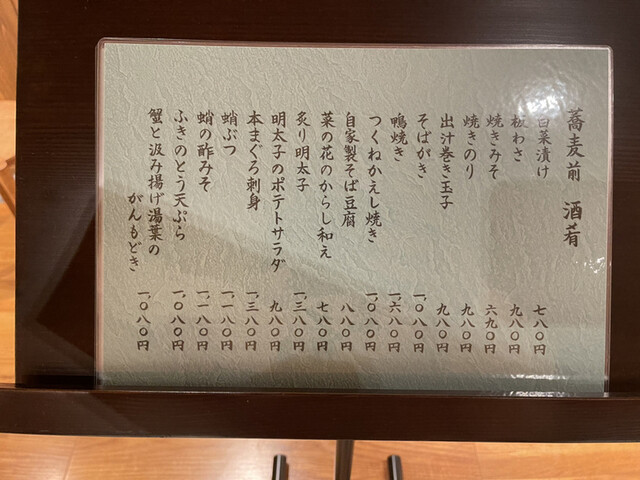 蕎麦前 酒肴
白菜漬け 七八〇円
板わさ 九八〇円
焼きみそ 六九〇円
焼きのり 九八〇円
出汁巻き玉子 九八〇円
そばがき 一,〇八〇円
鴨焼き 一,六八〇円
つくねかえし焼き 一,〇八〇円
自家製そば豆腐 八八〇円
菜の花のからし和え 七八〇円
炙り明太子 一,三八〇円
明太子のポテトサラダ 九八〇円
本まぐろ刺身 一,三八〇円
蛸ぶつ 一,一八〇円
蛸の酢みそ 一,一八〇円
ふきのとう天ぷら 一,〇八〇円
蟹と汲み揚げ湯葉の
がんもどき 一,〇八〇円